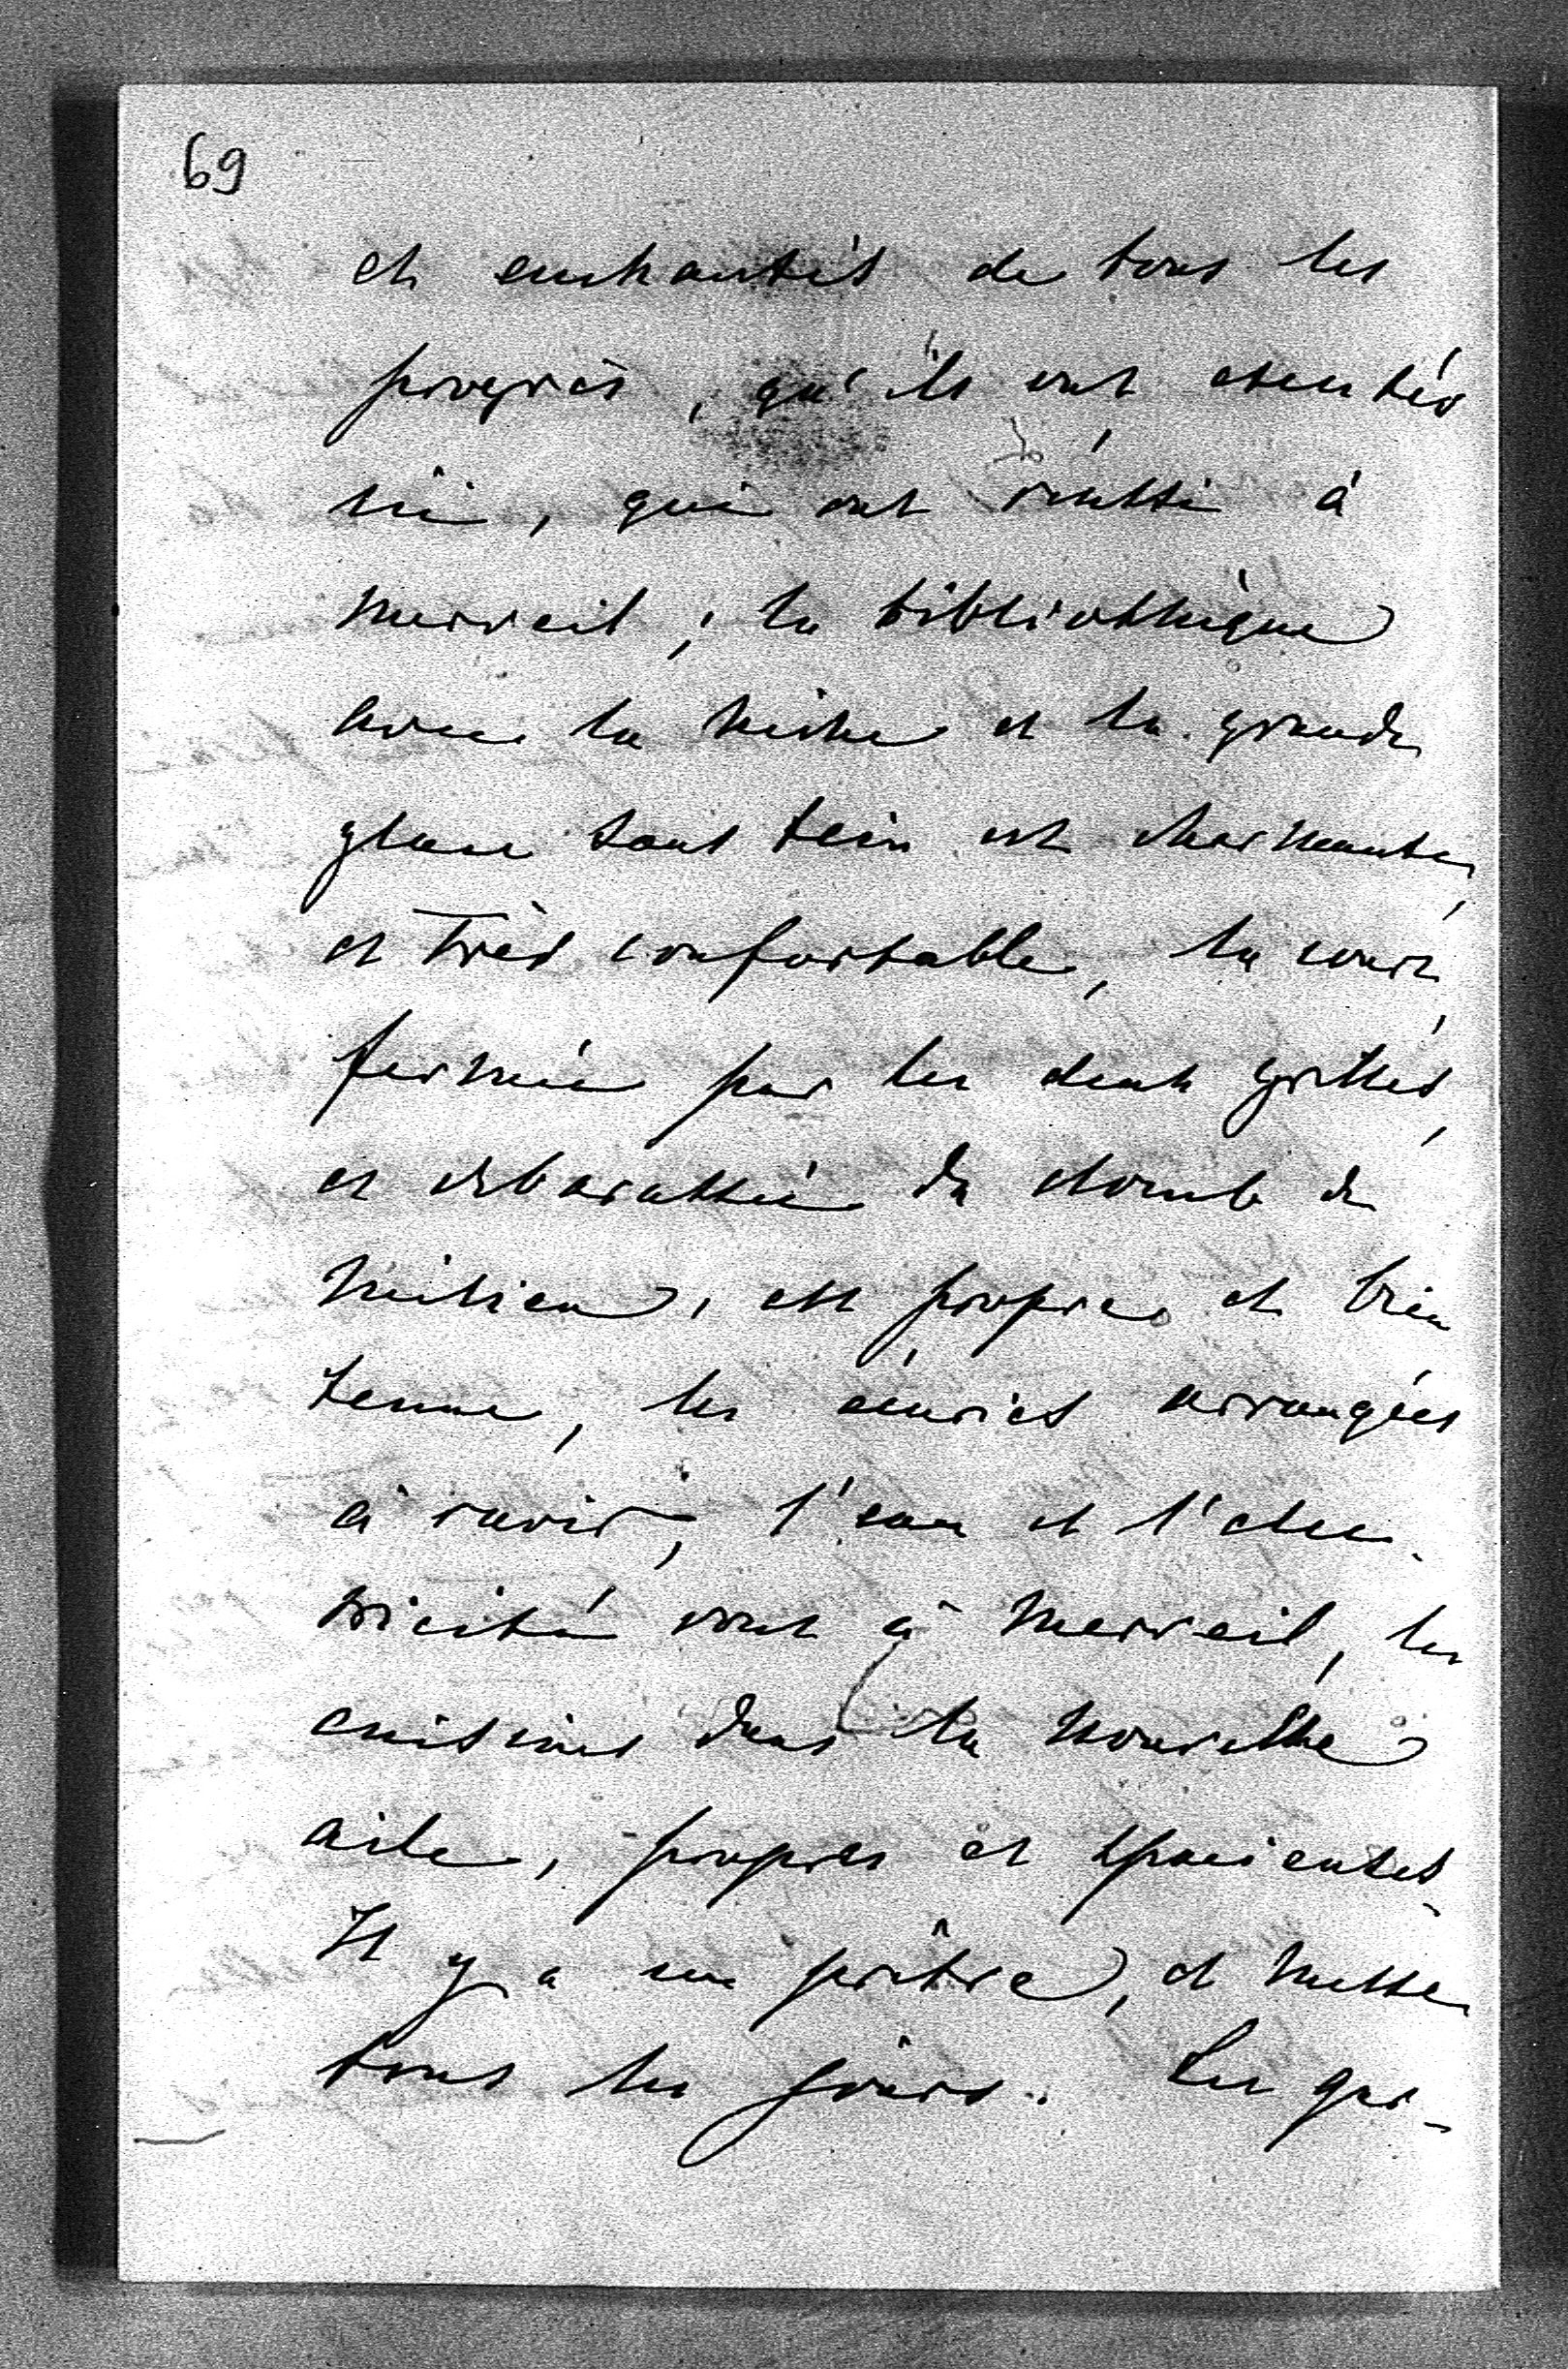 69
et enchantés de tous les
progrès, qu'ils ont exentés
ici, qui ont réussi à
merveil; la bibliothèque
avec la niche et la grande
glace sans tein est charmante,
et très confortable, la cour,
fermée par les deux grilles,
et debarassée du du
milieu, est propre et bien
tenue, les écuries arrangées
à ravir, l'eau et l'elec-
tricité vont à merveil, les
cuisines dans la nouvelle
aile, propres et spacieuses.
Il y a un prêtre, et messe
tous les jours. Les gar-